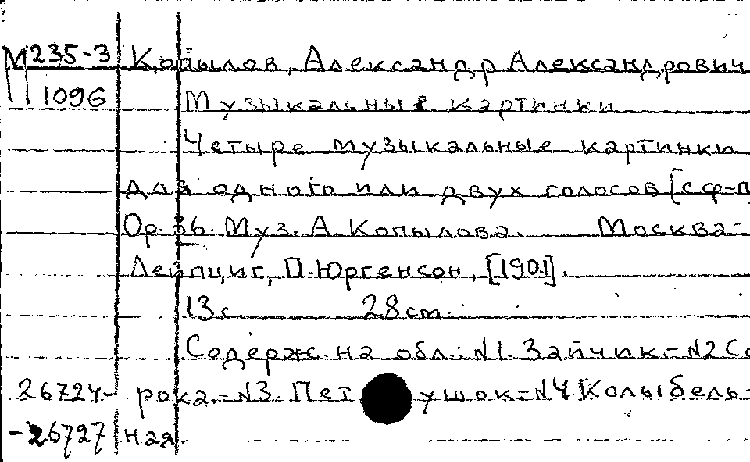 М 235-3 Копылов, Александр Александрович
1096 Музыкальные картинки
Четыре музыкальные картинки
для одного или двух голосов [с ф-п
Ор. 36. Муз. А Копылова. Москва-
Лейпциг, П. Юргенсон, [1901].
13 с. 28 см.
Содерж. на обл.: №1. Зайчик.-№2 Со
26724- рока.-№3. Петушок-№4 Колыбель-
-26727 ная.